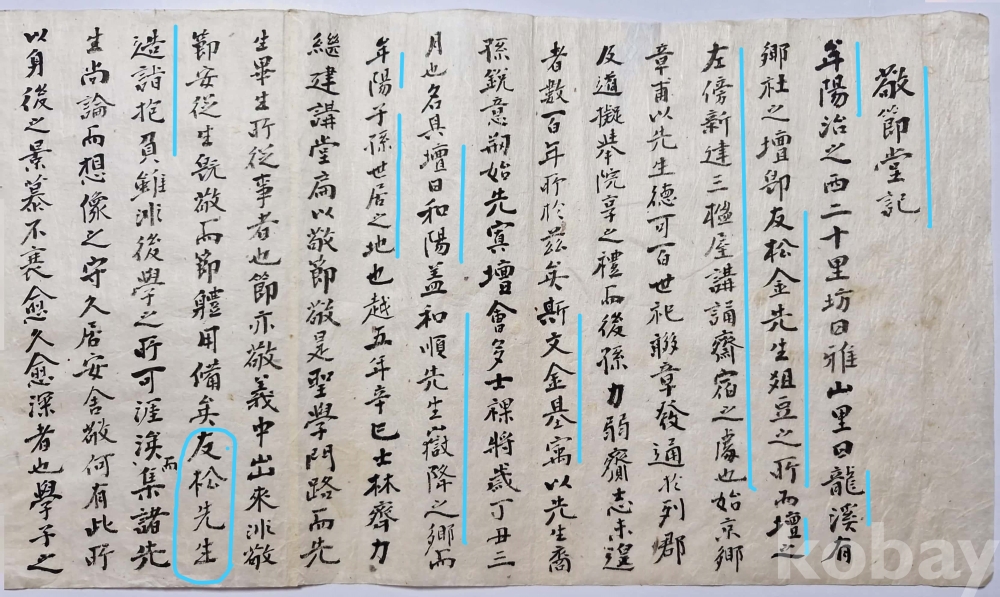 敬節堂記
年陽治之西二十里坊曰雅山里曰龍溪有
鄉社之壇卽友松金先生俎豆之所而壇之
左傍新建三楹屋講誦齋宿之處也始京鄉
章甫以先生德可百世祀聯章發通於列郡
及道擬擧院享之禮而後孫力弱齎志未遑
者數百年所於玆矣斯文金基寓以先生裔
孫銳意刱始先寘壇會多士祼將歲丁丑三
月也名其壇曰和陽盖和順先生嶽降之鄉而
年陽子孫世居之地也越五年辛巳士林齊力
繼建講堂扁以敬節敬是聖學門路而先
生畢生所從事者也節亦敬義中出來非敬
節安從生旣敬而節軆用備矣友松先生
造詣抱負雖非後學之所可涯涘而集諸先
生尚論而想像之守久居安舍敬何有此所
以身後之景慕不衰愈久愈深者也學子之
kobay